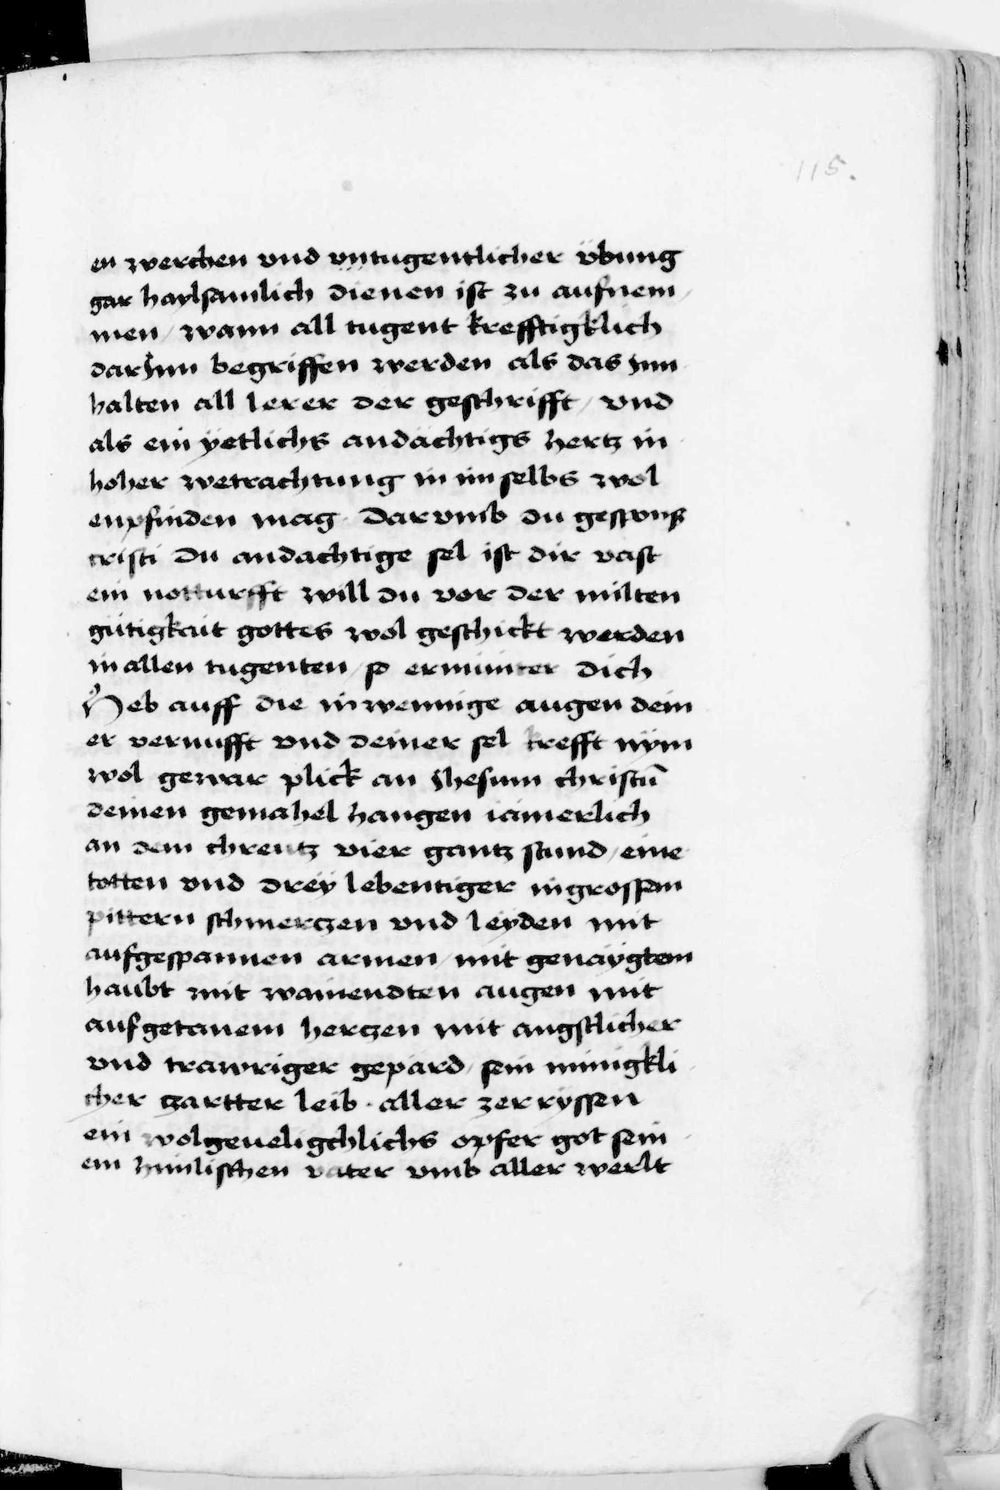 115.
en werchen vnd vntugentlicher übung
gar haylsamlich dienen ist zu aufnem
men / wann all tugent krefftigklich
darynn begriffen werden als das ynn
halten all lerer der geschrifft / vnd
als ein yetlichs andächtigs hertz in
hoher wetrachtung in im selbs wol
enpfinden mag · Darvmb du gespons
cristi du andachtige sel ist dir vast
ein notturfft will du vor der milten
gütigkait gottes wol geschickt werden
in allen tugenten / so ermunter dich
Heb auff die inwennige augen dein
er vernufft vnd deiner sel krefft nym
wol gewar plick an Jhesum christū
deinen gemahel hangen iämerlich
an dem chreutz vier gantz stund / eine
totten vnd drey lebentiger in grossen
pittern schmerczen vnd leyden mit
aufgespannen armen / mit genäygtem
haubt mit wainendten augen mit
aufgetanem herczen mit angstlicher
vnd trawriger gepärd / sein minigkli
cher zartter leib · aller zerryssen
ein wolgeueligchlichs opfer got sein
em himlischen vater vmb aller werlt